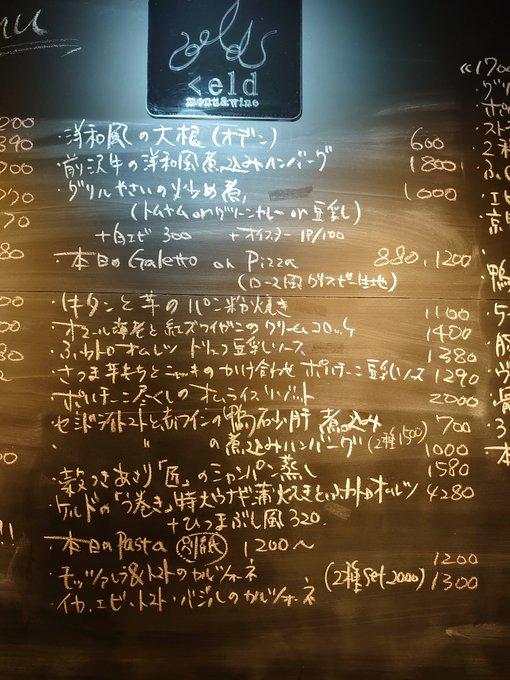 eld
menu&wine
・洋和風の大根(オデン) 600
・前沢牛の洋和風煮込みハンバーグ 1800
・グリルやさいの炒め煮 1000
(トムヤム or グリーンカレー or 豆乳)
+白エビ 300 +オイスター 1P/100
・本日の Galetto or Pizza 880, 1200
(ローマ風クリスピー生地)
・牛タンと芋のパン粉焼き 1100
・オマール海老と紅ズワイがにのクリームコロッケ 1400
・ふわトロオムレツ トリュフ豆乳ソース 1380
・さつま芋もちとニョッキのかけ合わせ ポルチーニ豆乳ソース 1290
・ポルチーニ尽くしのオムライスリゾット 2000
・セミドライトマトと赤ワインの鴨砂肝煮込み 700
・〃 の煮込みハンバーグ (2種1500) 1000
・殻つきあさり「匠」のシャンパン蒸し 1580
・ケルドの「う巻き」特大ウナギ蒲焼きとふわトロオムレツ 4280
+ひつまぶし風 320
・本日の Pasta 別紙 1200〜
・モッツァレラ&トマトのカルツォーネ 1200
(2種 set 2000)
・イカ・エビ・トマト・バジルのカルツォーネ 1300